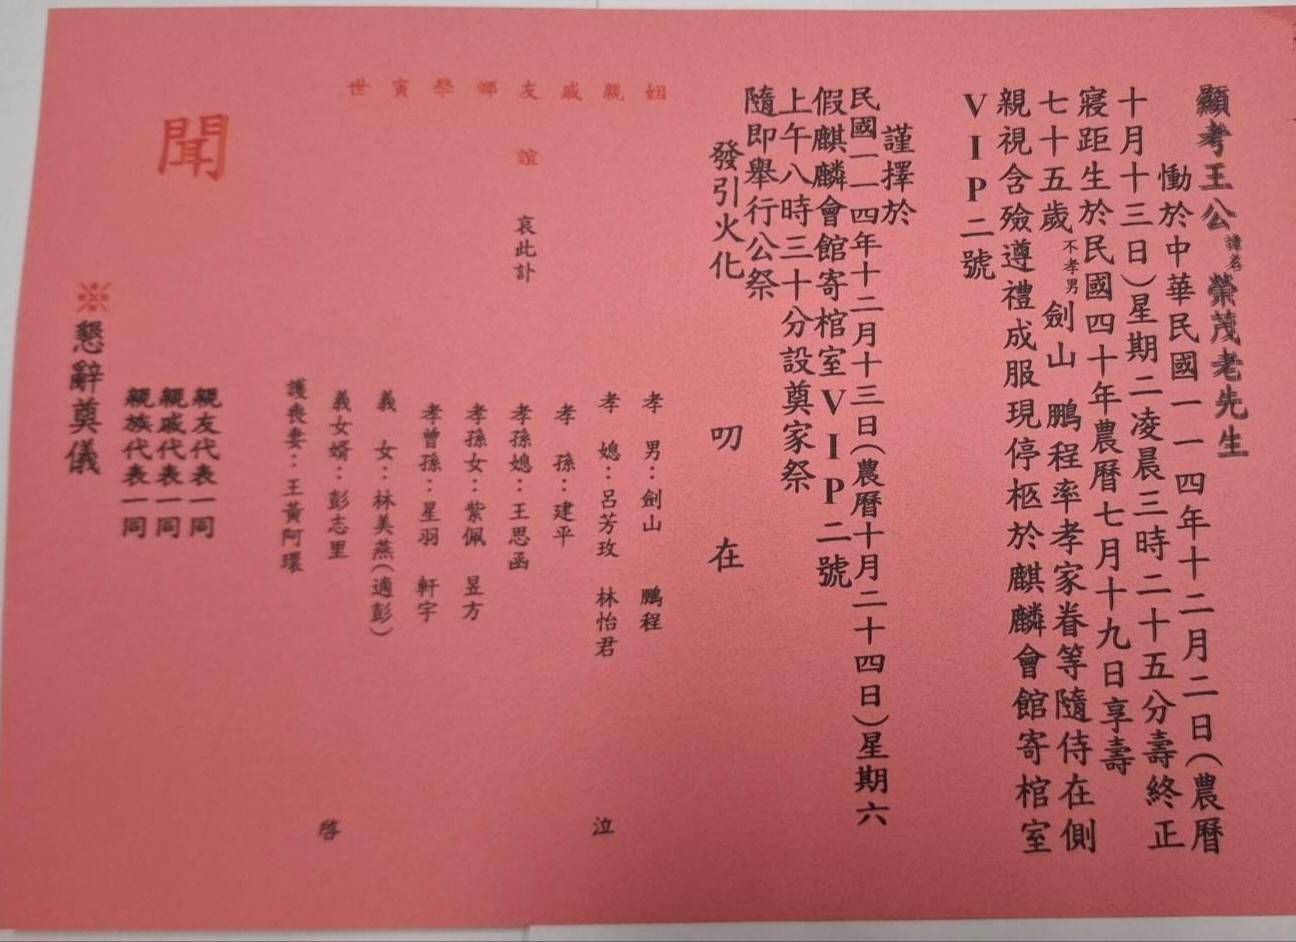 顯考王公諱名榮茂老先生
慟於中華民國一一四年十二月二日(農曆
十月十三日)星期二凌晨三時二十五分壽終正
寢距生於民國四十年農曆七月十九日享壽
七十五歲不孝男劍山 鵬程率孝家眷等隨侍在側
親視含殮遵禮成服現停柩於麒麟會館寄棺室
VIP二號
謹擇於
民國一一四年十二月十三日(農曆十月二十四日)星期六
假麒麟會館寄棺室VIP二號
上午八時三十分設奠家祭
隨即舉行公祭
發引火化 叨 在
姻親戚友鄉學寅世
誼 哀此訃
孝 男:劍山 鵬程
孝 媳:呂芳玫 林怡君
孝 孫:建平
孝孫媳:王思函
孝孫女:紫佩 昱方
孝曾孫:星羽 軒宇
義 女:林美燕(適彭)
義女婿:彭志里
護喪妻:王黃阿環
泣
啓
聞
親友代表一同
親戚代表一同
親族代表一同
※懇辭奠儀